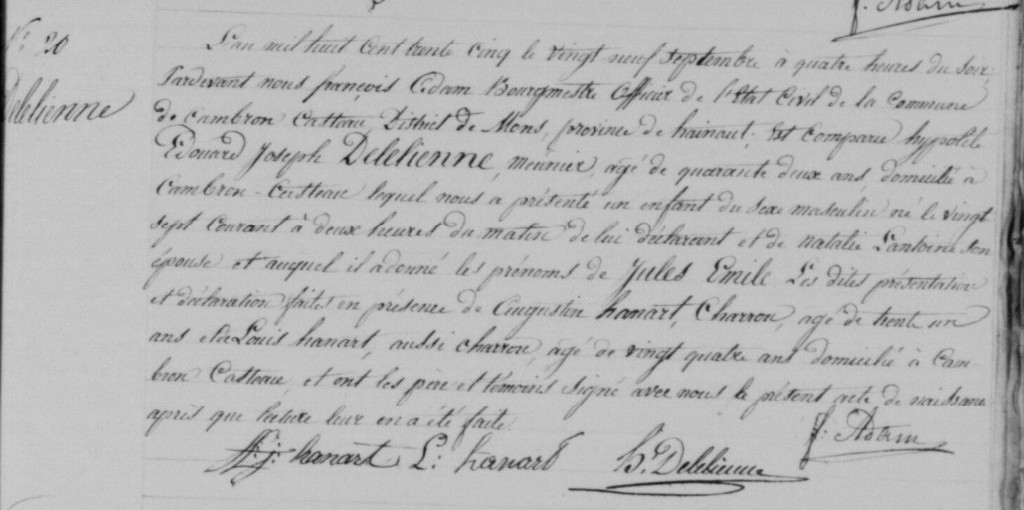 f. Adam
N.° 20
Delelienne
L'an mil huit cent trente cinq le vingt neuf septembre à quatre heures du soir,
Pardevant nous françois Adam Bourgmestre Officier de l'état Civil de la Commune
de Cambron Casteau, District de Mons, province de hainaut; est comparu hypolite
Edouard Joseph Delelienne, meunier, agé de quarante deux ans, domicilié à
Cambron-Casteau lequel nous a présenté un enfant du sexe masculin né le vingt
sept courant à deux heures du matin de lui déclarant et de natalie Lantoine son
épouse et auquel il a donné les prénoms de Jules Emile. Les dites présentation
et déclaration faites en présence de Augustin hanart, Charron, agé de trente un
ans et de Louis hanart, aussi charron, agé de vingt quatre ans domicilié à Cam-
bron Casteau, et ont les père et témoins signé avec nous le présent acte de naissance
après que lecture leur en a été faite.
f. Adam
A. j. hanart L. hanart h. Delelienne